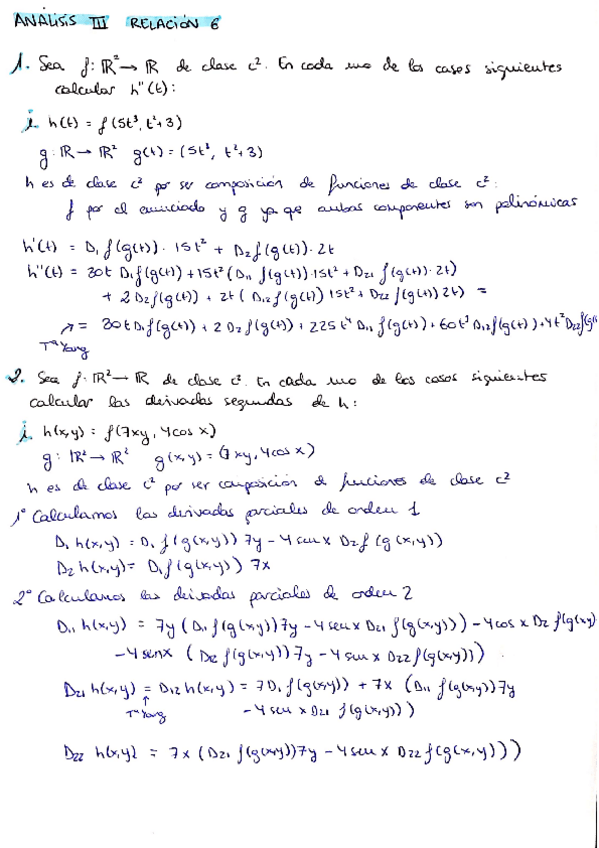 ANÁLISIS III RELACIÓN 6
1. Sea f: ℝ² → ℝ de clase C². En cada uno de los casos siguientes
calcular h''(t):
i. h(t) = f(5t³, t²+3)
g: ℝ → ℝ² g(t) = (5t³, t²+3)
h es de clase C² por ser composición de funciones de clase C²:
f por el enunciado y g ya que ambas componentes son polinómicas
h'(t) = D₁f(g(t))·15t² + D₂f(g(t))·2t
h''(t) = 30t D₁f(g(t)) + 15t² (D₁₁ f(g(t))·15t² + D₂₁ f(g(t))·2t)
+ 2 D₂f(g(t)) + 2t (D₁₂ f(g(t)) 15t² + D₂₂ f(g(t)) 2t) =
= 30t D₁f(g(t)) + 2 D₂f(g(t)) + 225t⁴ D₁₁ f(g(t)) + 60t³ D₁₂f(g(t)) + 4t² D₂₂f(g(
Tª Yang
2. Sea f: ℝ² → ℝ de clase C². En cada uno de los casos siguientes
calcular las derivadas segundas de h:
i. h(x,y) = f(7xy, 4cos x)
g: ℝ² → ℝ² g(x,y) = (7xy, 4cos x)
h es de clase C² por ser composición de funciones de clase C²
1º Calculamos las derivadas parciales de orden 1
D₁ h(x,y) = D₁ f(g(x,y)) 7y - 4 sen x D₂ f(g(x,y))
D₂ h(x,y) = D₁ f(g(x,y)) 7x
2º Calculamos las derivadas parciales de orden 2
D₁₁ h(x,y) = 7y (D₁₁ f(g(x,y)) 7y - 4 sen x D₂₁ f(g(x,y))) - 4cos x D₂ f(g(x,y)
-4 sen x (D₂ f(g(x,y)) 7y - 4 sen x D₂₂ f(g(x,y)))
D₂₁ h(x,y) = D₁₂ h(x,y) = 7 D₁ f(g(x,y)) + 7x (D₁₁ f(g(x,y)) 7y
Tª Yang
- 4 sen x D₂₁ f(g(x,y)))
D₂₂ h(x,y) = 7x (D₂₁ f(g(x,y)) 7y - 4 sen x D₂₂ f(g(x,y)))